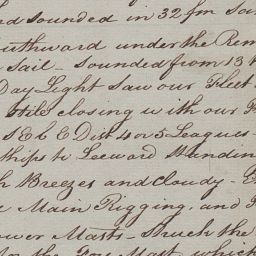 sounded in 32 fm
outhward under the
Sail - Sounded from 13
Day Light Saw our Fleet
While closing with our
S E b E Dist 4 or 5 Leagues
Ships to Leeward
Breezes and Cloudy -
Main Rigging, and
ower Masts - Struck the
for the Fore Mast which